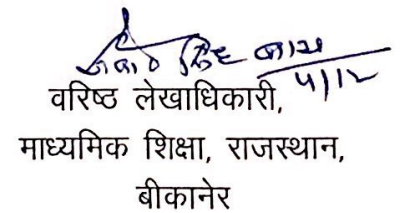 4/12
वरिष्ठ लेखाधिकारी,
माध्यमिक शिक्षा, राजस्थान,
बीकानेर